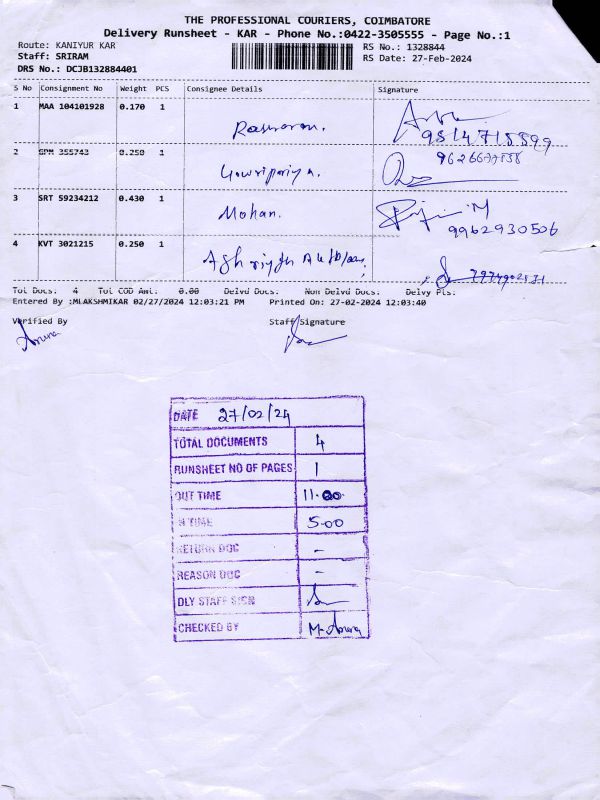 THE PROFESSIONAL COURIERS, COIMBATORE
Delivery Runsheet - KAR - Phone No.:0422-3505555 - Page No.:1
Route: KANIYUR KAR
RS No.: 1328844
Staff: SRIRAM
RS Date: 27-Feb-2024
DRS No.: DCJB132884401
S No Consignment No Weight PCS Consignee Details Signature
1 MAA 104101928 0.170 1
2 GPM 355743 0.250 1 Gowripriya.
3 SRT 59234212 0.430 1 Mohan. 9962930506
4 KVT 3021215 0.250 1
Tot Docs: 4 Tot COD Amt: 0.00 Delvd Docs: Non Delvd Docs: Delvy Pts:
Entered By :MLAKSHMIKAR 02/27/2024 12:03:21 PM Printed On: 27-02-2024 12:03:40
Verified By Staff Signature
DATE 27/02/24
TOTAL DOCUMENTS 4
RUNSHEET NO OF PAGES 1
OUT TIME 11.00
IN TIME 5.00
RETURN DOC -
REASON DOC -
DLY STAFF SIGN
CHECKED BY